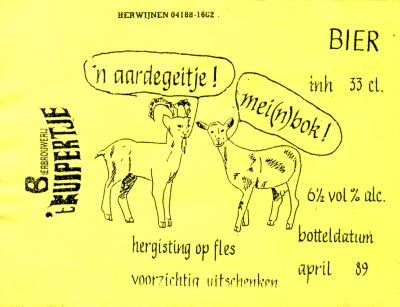 HERWIJNEN 04188-1602.
BIER
'n aardegeitje !
inh 33 cl.
mei(n)bok !
BIERBROUWERIJ
't KUIPERTJE
6½ vol % alc.
hergisting op fles
botteldatum
voorzichtig uitschenken
april 89